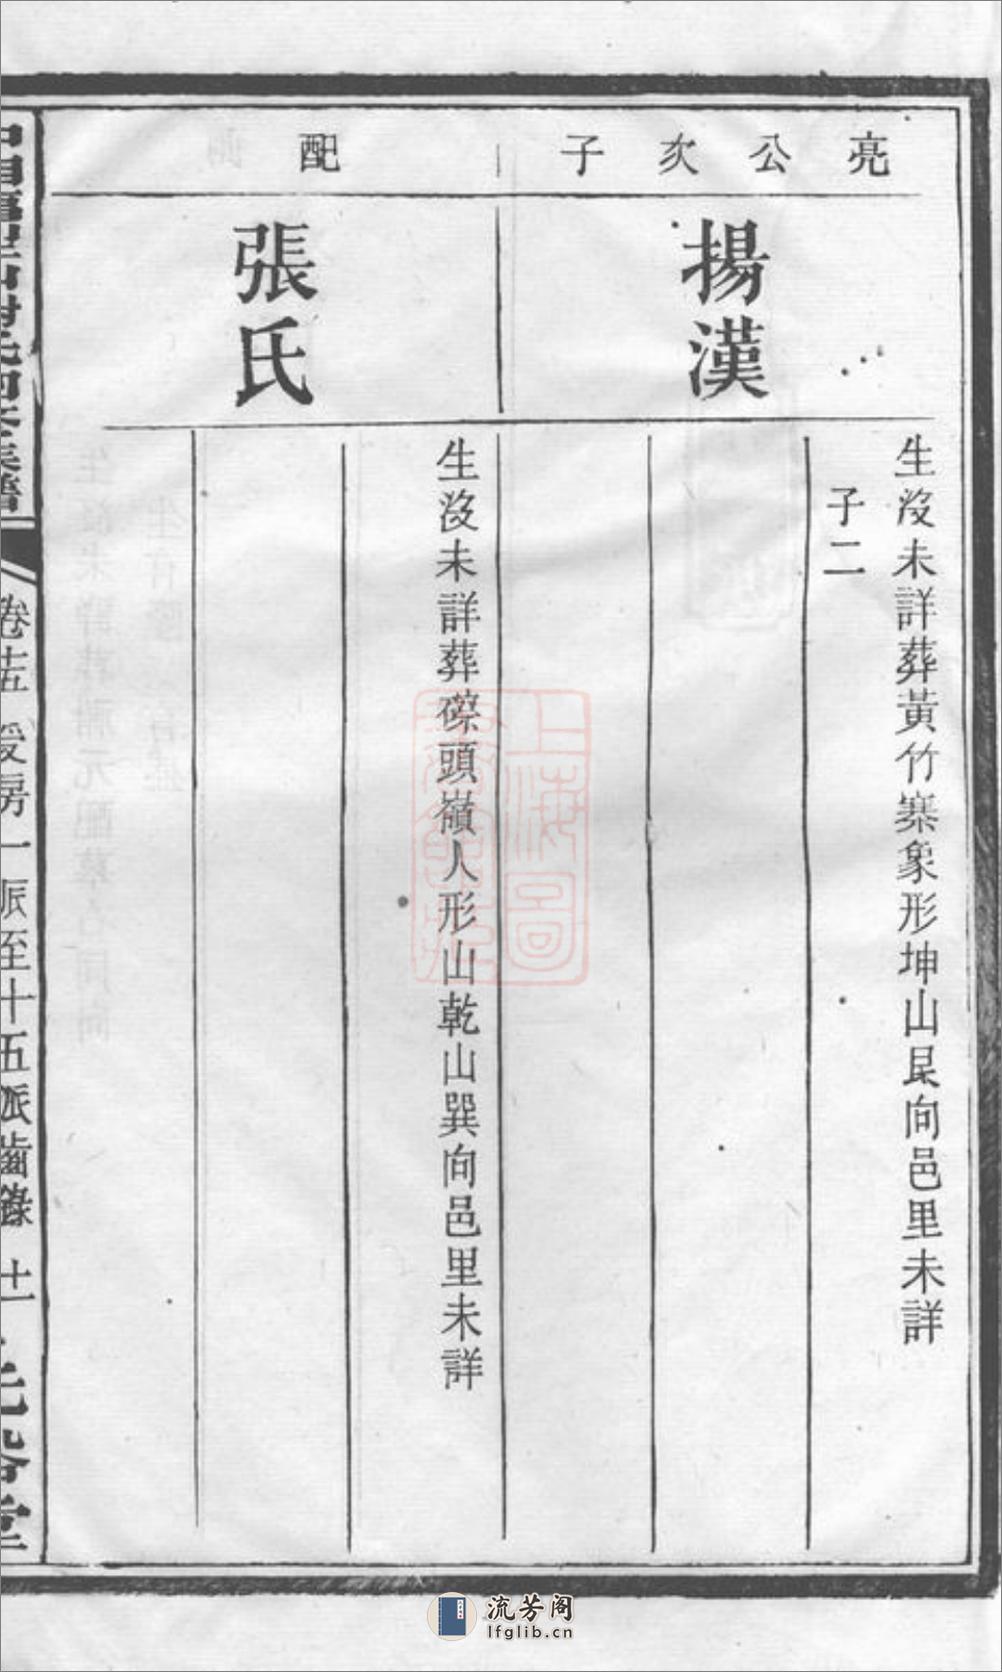 亮公次子
揚漢
生沒未詳葬黃竹寨象形坤山艮向邑里未詳
子二
配
張氏
生沒未詳葬磜頭嶺人形山乾山巽向邑里未詳
卷十五
房一派至十五派齒錄
十一
堂
上海圖
流芳阁
lfglib.cn